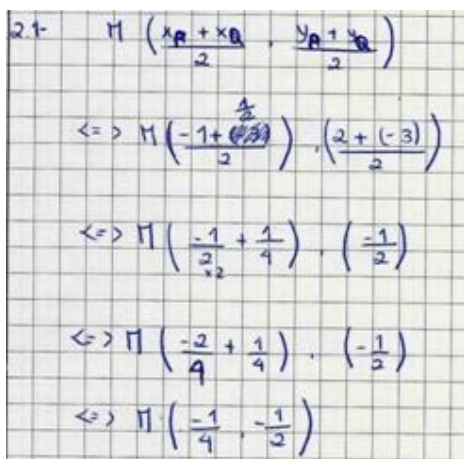 2.1- M ( (xA + xB)/2 , (yA + yB)/2 )
<=> M ( (-1 + 1/2)/2 ) , ( (2 + (-3))/2 )
<=> M ( -1/2 ×2 + 1/4 ) , ( -1/2 )
<=> M ( -2/4 + 1/4 ) , ( -1/2 )
<=> M ( -1/4 , -1/2 )